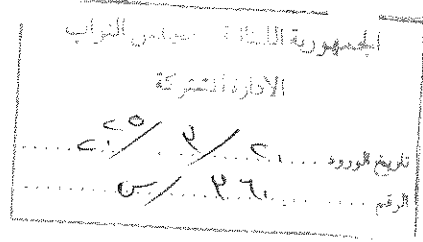 الجمهورية اللبنانية مجلس النواب
الادارة المشتركة
تاريخ الورود ٢٠ / ٣ / ٢٠٢٥
الرقم ٣٦١ / س